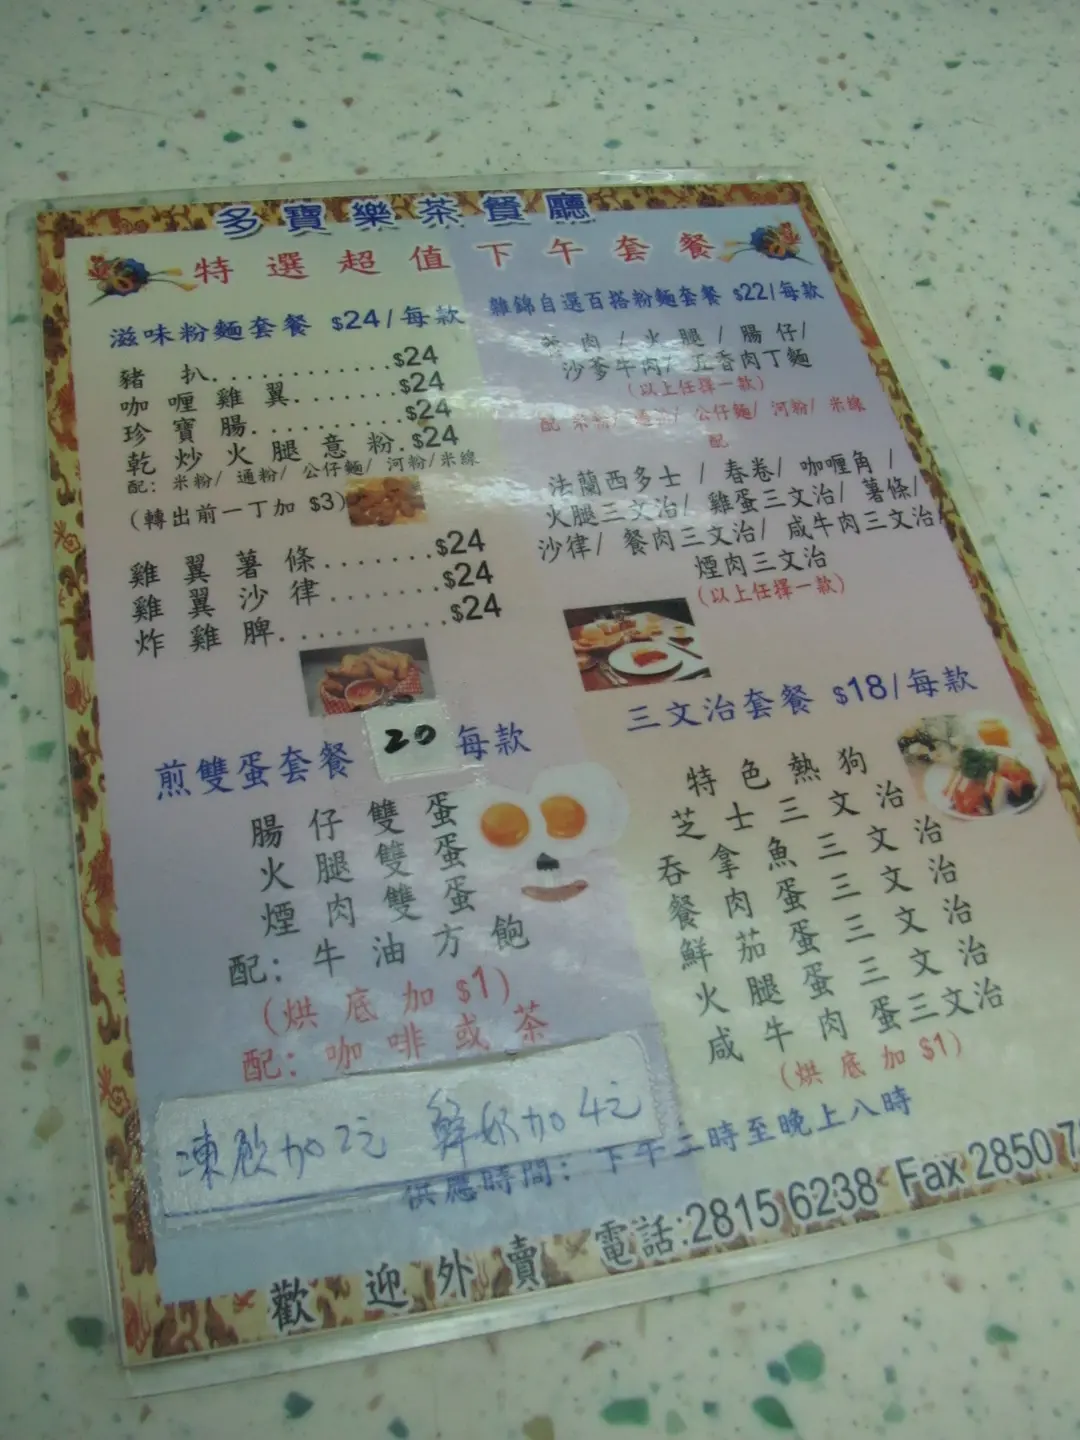 多寶樂茶餐廳
特選超值下午套餐
滋味粉麵套餐 $24/每款
豬扒............$24
咖喱雞翼.......$24
珍寶腸..........$24
乾炒火腿意粉.$24
配: 米粉/ 通粉/ 公仔麵/ 河粉/米線
(轉出前一丁加 $3)
雞翼薯條.......$24
雞翼沙律.......$24
炸雞脾..........$24
煎雙蛋套餐 20 每款
腸仔雙蛋
火腿雙蛋
煙肉雙蛋
配: 牛油方飽
(烘底加 $1)
配: 咖啡或茶
凍飲加2元 鮮奶加4元
雜錦自選百搭粉麵套餐 $22/每款
肉/火腿/腸仔/
沙爹牛肉/ 五香肉丁麵
(以上任擇一款)
配 米粉/ 通粉/ 公仔麵/ 河粉/ 米線
配
法蘭西多士 / 春卷/ 咖喱角 /
火腿三文治/ 雞蛋三文治/ 薯條/
沙律/ 餐肉三文治/ 咸牛肉三文治/
煙肉三文治
(以上任擇一款)
三文治套餐 $18/每款
特色熱狗
芝士三文治
吞拿魚三文治
餐肉蛋三文治
鮮茄蛋三文治
火腿蛋三文治
咸牛肉蛋三文治
(烘底加 $1)
供應時間: 下午二時至晚上八時
歡迎外賣 電話:2815 6238 Fax 2850